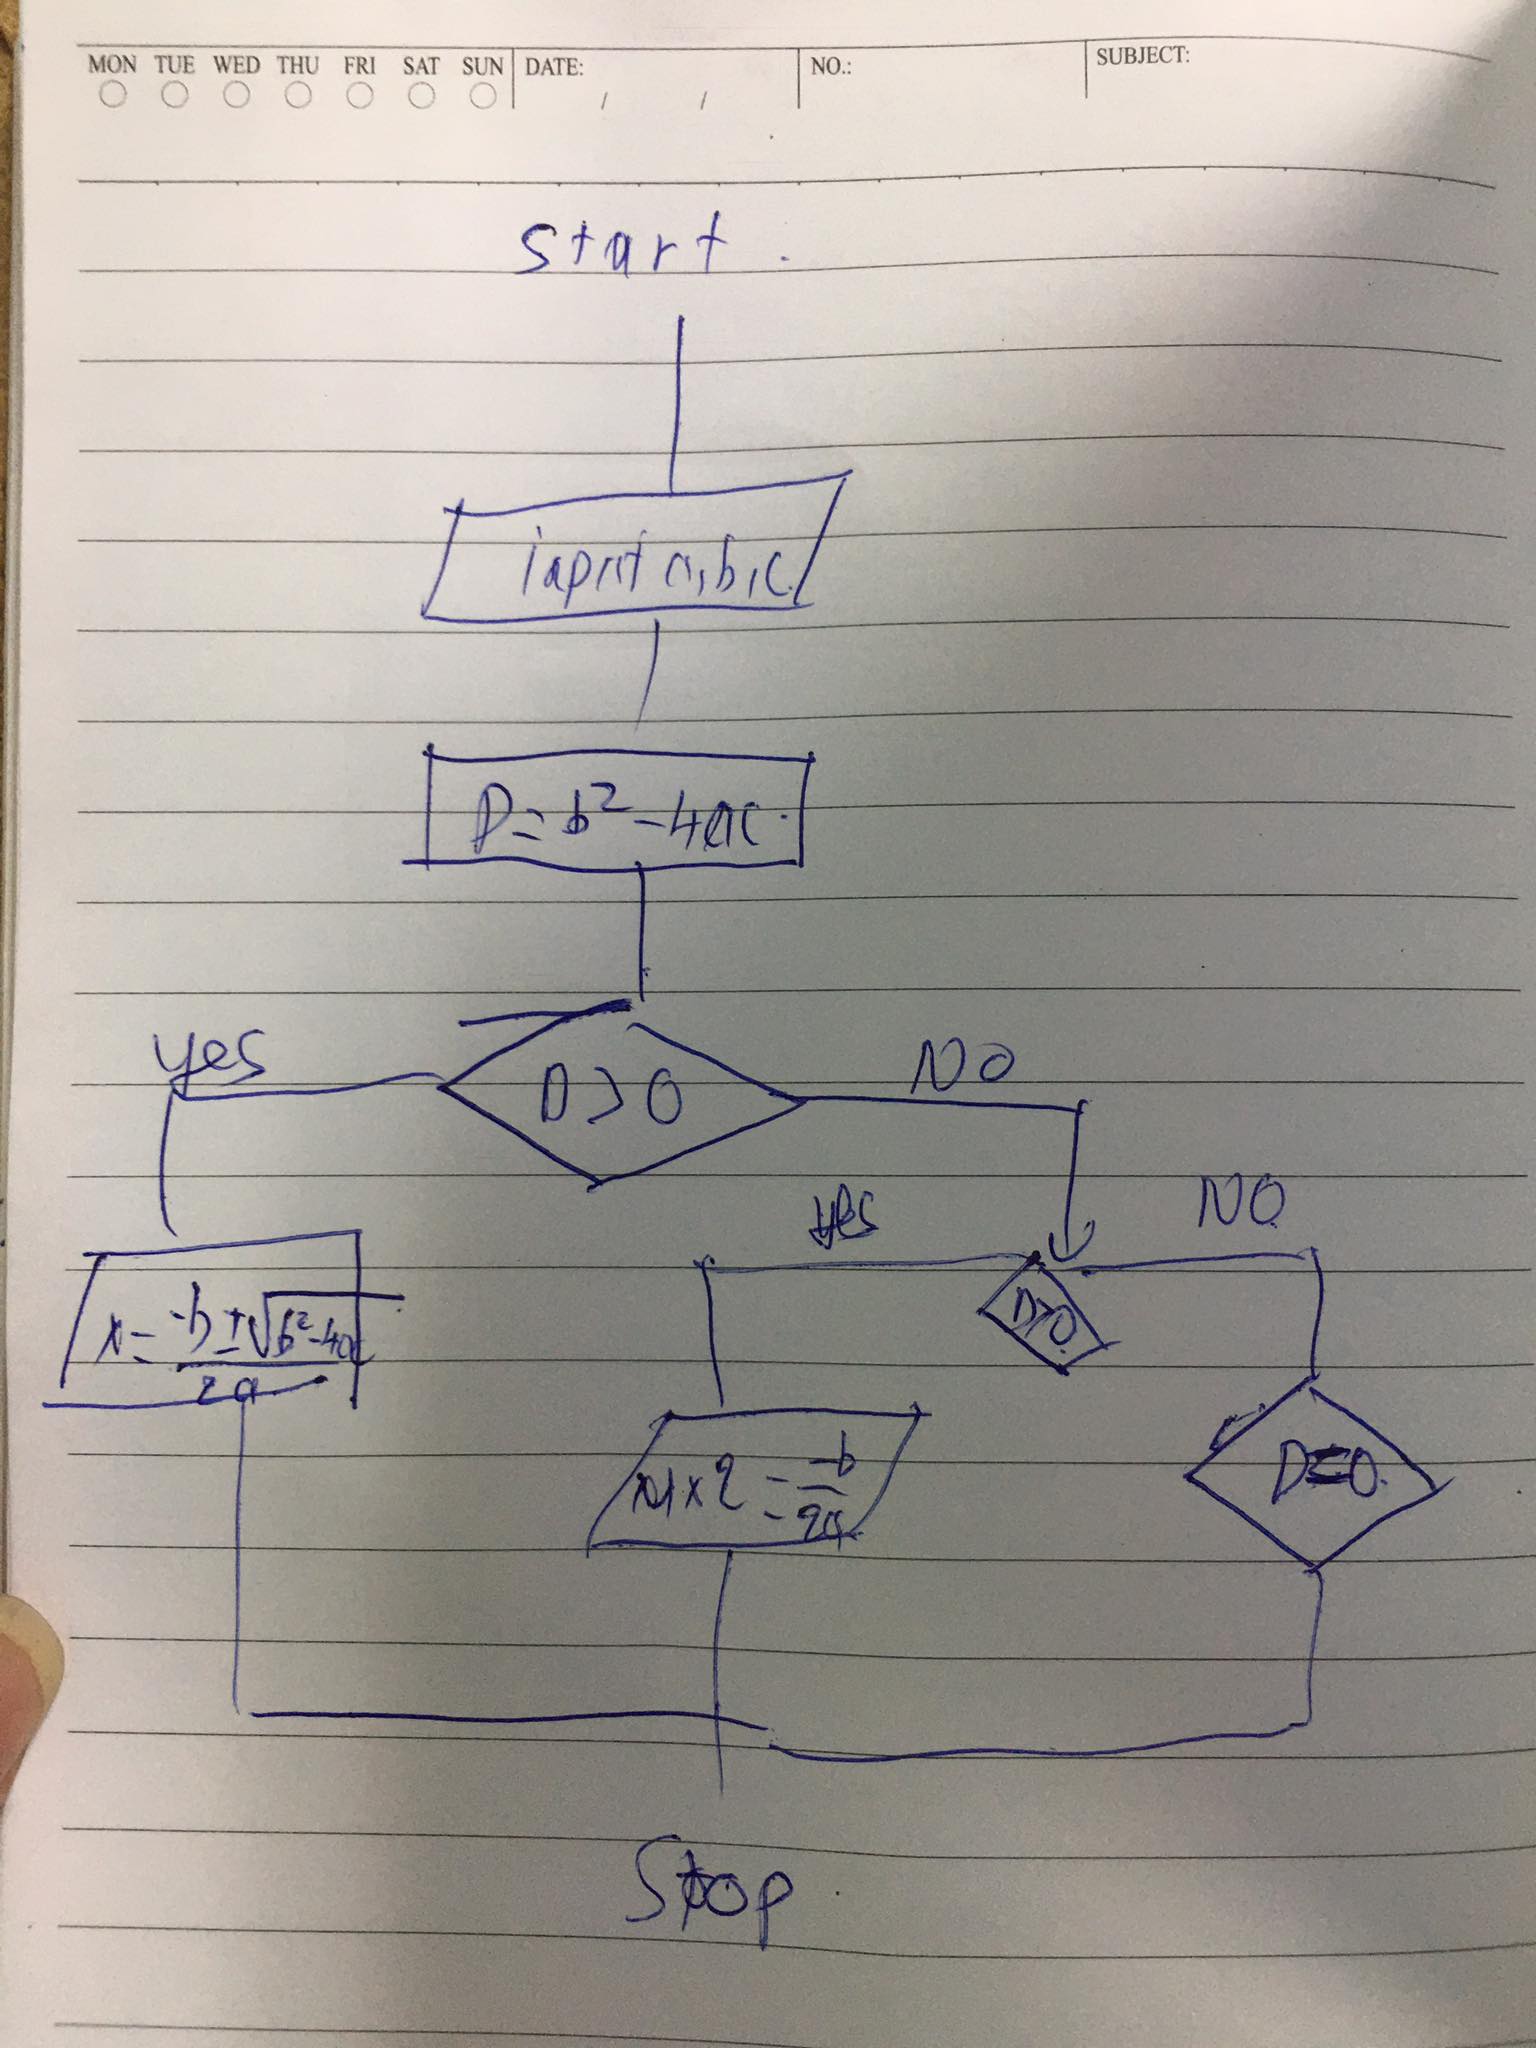 MON TUE WED THU FRI SAT SUN DATE: / / NO.: SUBJECT:
Start.
input a,b,c
D=b²-4ac
D>0
yes
NO
yes
NO
D>0
x= -b±√b²-4ac
2a
x1x2 = -b
2a
Stop